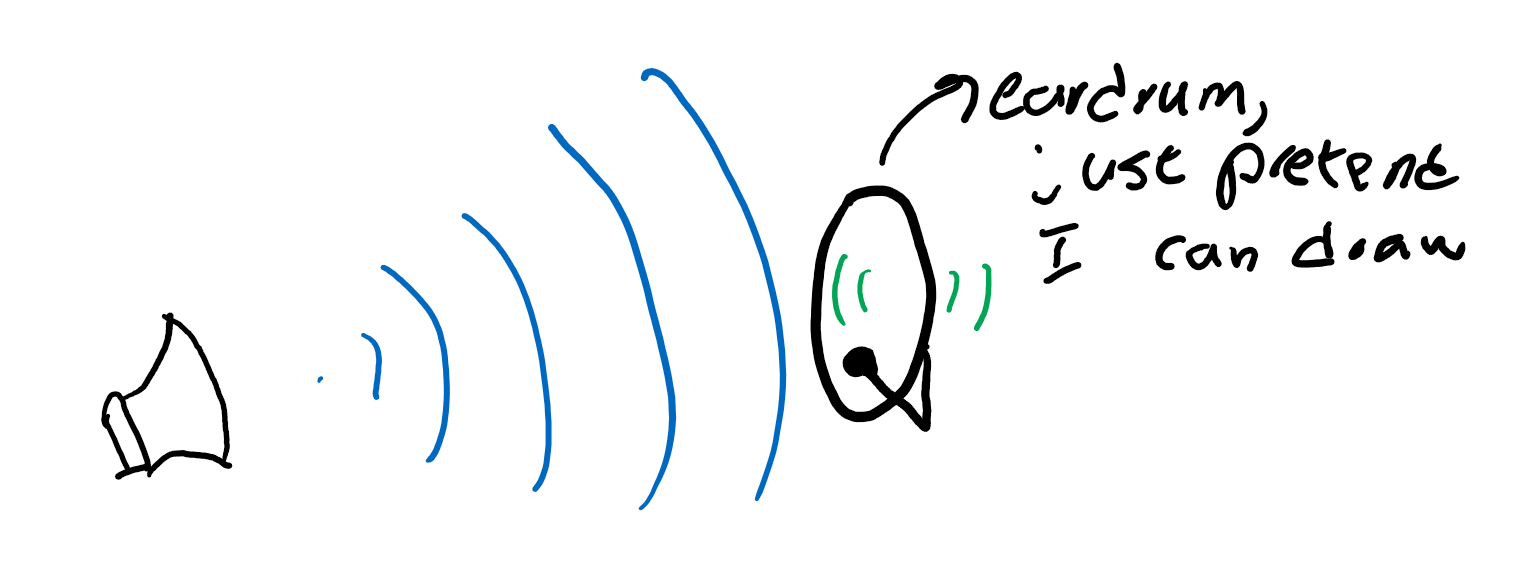 eardrum,
just pretend
I can draw